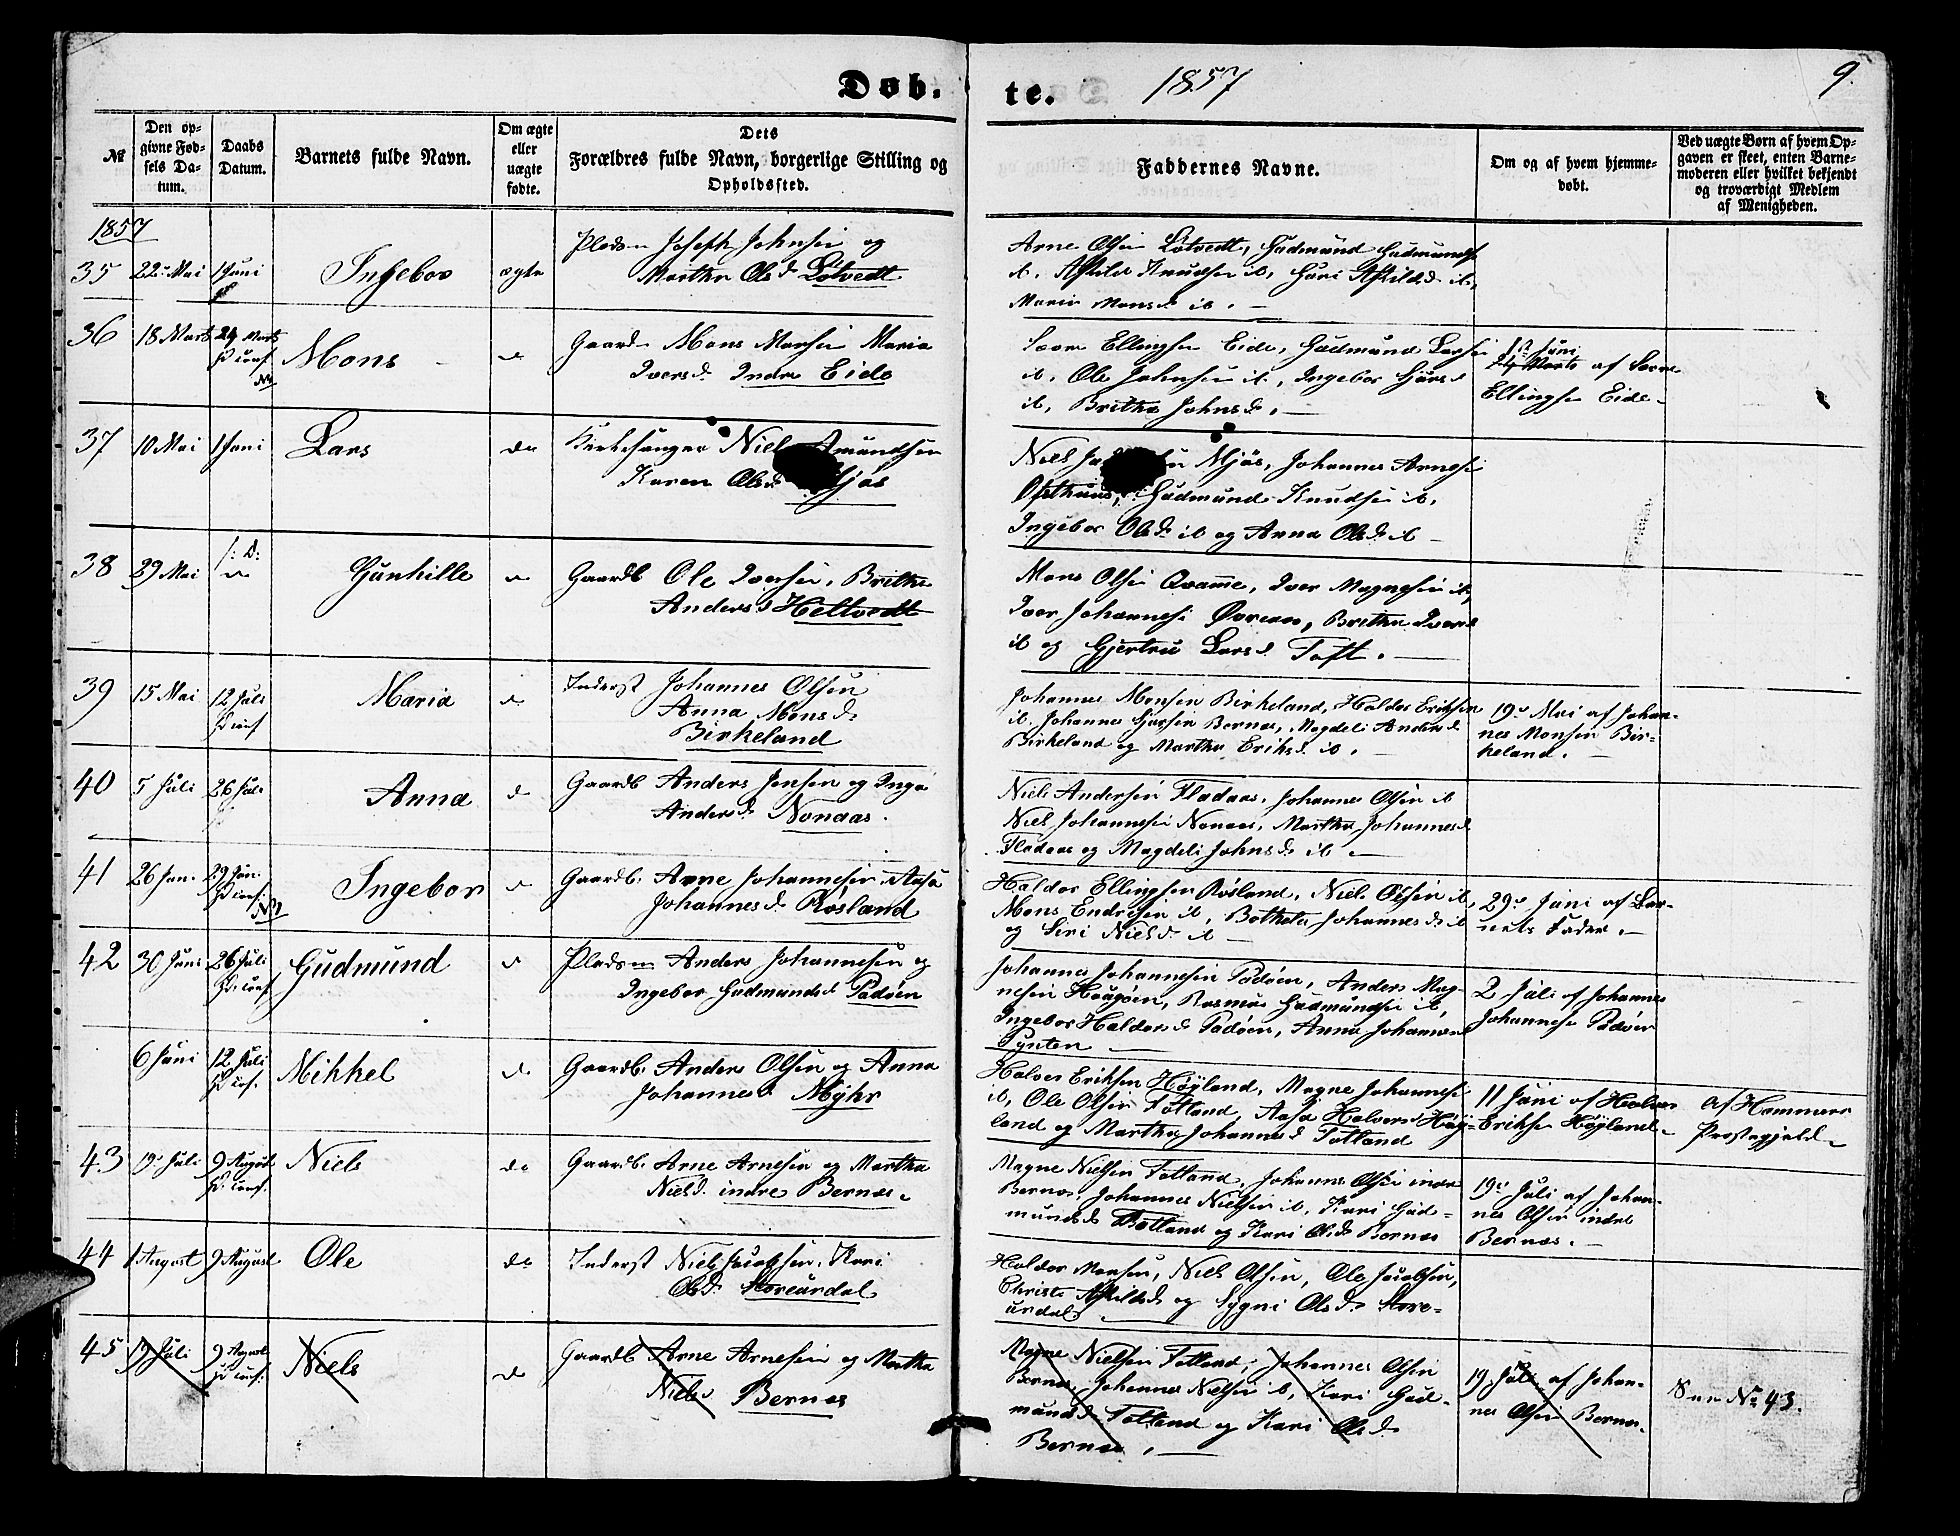 Døb. te. 1857 9.
№
Den op-
givne Fød-
sels Da-
tum.
Daabs
Datum.
Barnets fulde Navn.
Om ægte
eller
uægte
fødte.
Dets
Forældres fulde Navn, borgerlige Stilling og
Opholdssted.
Faddernes Navne.
Om og af hvem hjemme-
døbt.
Ved uægte Børn af hvem Op-
gaven er skeet, enten Barne-
moderen eller hvilket bekjendt
og troværdigt Medlem
af Menigheden.
1857
35 22 Mai 1 Juni Ingebor ægte
Pladsm Joseph Johnsen og
Martha Olsd Løtvedt
Arne Olsen Løtvedt, Gudmund Gudmunds
it, Askild Knudsen it, Guri Askildsd it,
Maria Monsd it.
36 18 Marts 24 Marts
Mons
Gaardb Mons Monsen Maria
Iversd. Indre Eide
Ellingsen Eide, Gudmund Larsen
it. Ole Johnsen it, Ingebor
it, Britha Johnsd.
1st Juni
24 Marts af
Ellingsen Eide.
37 10 Mai 1 Juni Lars do
Kirkesanger Niels Amundsen
Karen Olsd Mjøs
Niels Mjøs, Johannes Arnesen
Østhuus, Gudmund Knudsen it.
Ingebor Olsd. it og Anna Olsd. it
38 29 Mai Gunhille
Gaardb Ole Iversen, Britha
Anders d Heltvedt
Mons Olsen Qvamme, Iver Magnesen it,
Iver Johannesen Øvreaas, Britha Iversd
it og Gjertru Larsd. Toft.
39 15 Mai 12 Juli
Maria
Inderst Johannes Olsen
Anna Mons d.
Birkeland
Johannes Monsen Birkeland, Haldor Eriksen
it. Johannes Bernes, Magdeli Andersd
Birkeland og Martha Eriksd. it.
19de Mai af Johan-
nes Monsen Bir-
keland.
40 5 Juli 26 Juli Anna
Gaardb Anders Jensen og Inga
Andersd. Nonaas.
Niels Andersen Fladaas, Johannes Olsen it
Niels Johannesen Nonaas, Martha Johannesd
Fladaas og Magdeli Johnsd. it.
41 26 Jun. 29 Jun. Ingebor
Gaardb. Arne Johannesen, Aasa
Johannesd. Røsland
Haldor Ellingsen Røsland, Niels Olsen it,
Mons Endresen it, Botheta Johannesd. it
og Siri Nielsd. it
29de Juni af Bar-
nets Fader.
42 30 Juni 26 Juli Gudmund
Pladsm Anders Johannesen og
Ingebor Gudmundsd Padøen
Johannes Johannesen Padøen, Anders Mag-
nesen Haugøen, Rasmus Gudmundsen it,
Ingebor Haldorsd Padøen, Anna Johannesd
Pynten
2 Juli af Johannes
Johannesen Padøen
6 Juni 12 Juli Mikkel do
Gaardb. Anders Olsen og Anna
Johannesd Myhr
Halvor Eriksen Høyland, Magne Johannesen
it, Ole Olsen Totland, Aasa Halvorsd Høy-
land og Martha Johannesd Totland
11 Juni af Halvor
Eriksen Høyland.
Af Hammers
Præstegjeld
43 19 Juli 9 August Niels do
Gaardb. Arne Arnesen og Martha
Nielsd. indre Bernes.
Magne Nielsen Totland, Johannes Olsen indre
Bernes, Johannes Nielsen it, Kari Gud-
mundsd Totland og Kari Olsd Bernes
19de Juli af Johan-
nes Olsen indre
Bernes.
44 1 August 9 August Ole do
Inderst Niels Jacobsen, Kari
Olsd. Storeurdal
Haldor Monsen, Niels Olsen, Ole Jacobsen,
Christi Askildsd og Sygni Olsd. Store-
urdal
45 19 Juli 9 August
Niels do
Gaardb Arne Arnesen og Martha
Nielsd Bernes
Magne Nielsen Totland, Johannes Olsen
Bernes, Johannes Nielsen it, Kari Gud-
mundsd. Totland og Kari Olsd.
Bernes.
19 Juli af Johan-
nes Olsen Bernes.
See No 43.